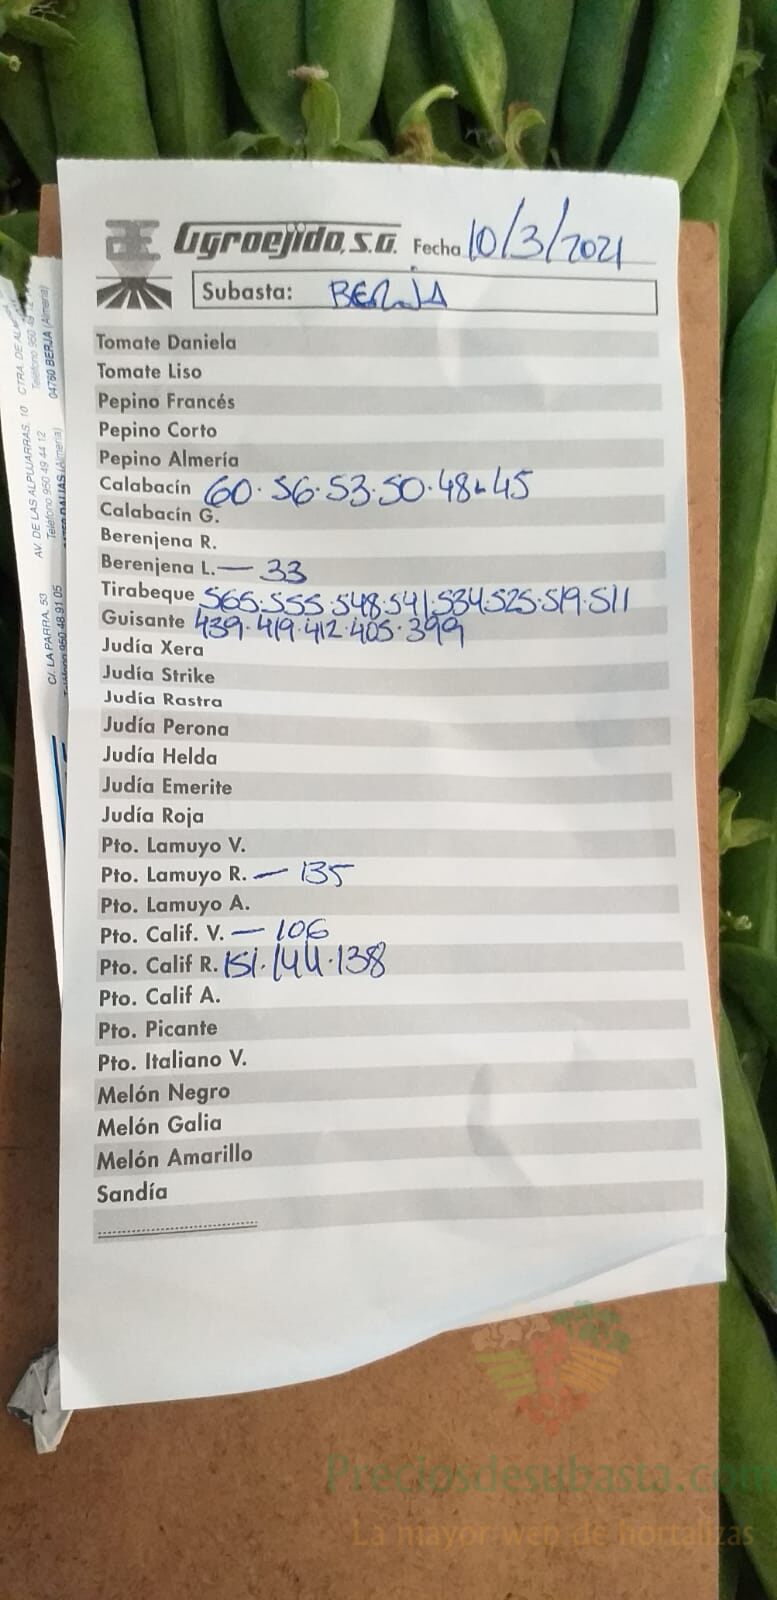 Agroejido, S.A. Fecha 10/3/2021
Subasta: BERJA
Tomate Daniela
Tomate Liso
Pepino Francés
Pepino Corto
Pepino Almería
Calabacín 60.56.53.50.48.45
Calabacín G.
Berenjena R.
Berenjena L. — 33
Tirabeque 565.555.548.541.534.525.519.511
Guisante 439.419.412.405.399
Judía Xera
Judía Strike
Judía Rastra
Judía Perona
Judía Helda
Judía Emerite
Judía Roja
Pto. Lamuyo V.
Pto. Lamuyo R. — 135
Pto. Lamuyo A.
Pto. Calif. V. — 106
Pto. Calif R. 151.144.138
Pto. Calif A.
Pto. Picante
Pto. Italiano V.
Melón Negro
Melón Galia
Melón Amarillo
Sandía
CTRA. DE
Teléfono 950 49
04760 BERJA (Almería)
AV. DE LAS ALPUJARRAS, 10
Teléfono 950 49 44 12
DALIAS (Almería)
C/. LA PARRA, 53
950 48 91 05
Preciosdesubasta.com
La mayor web de hortalizas